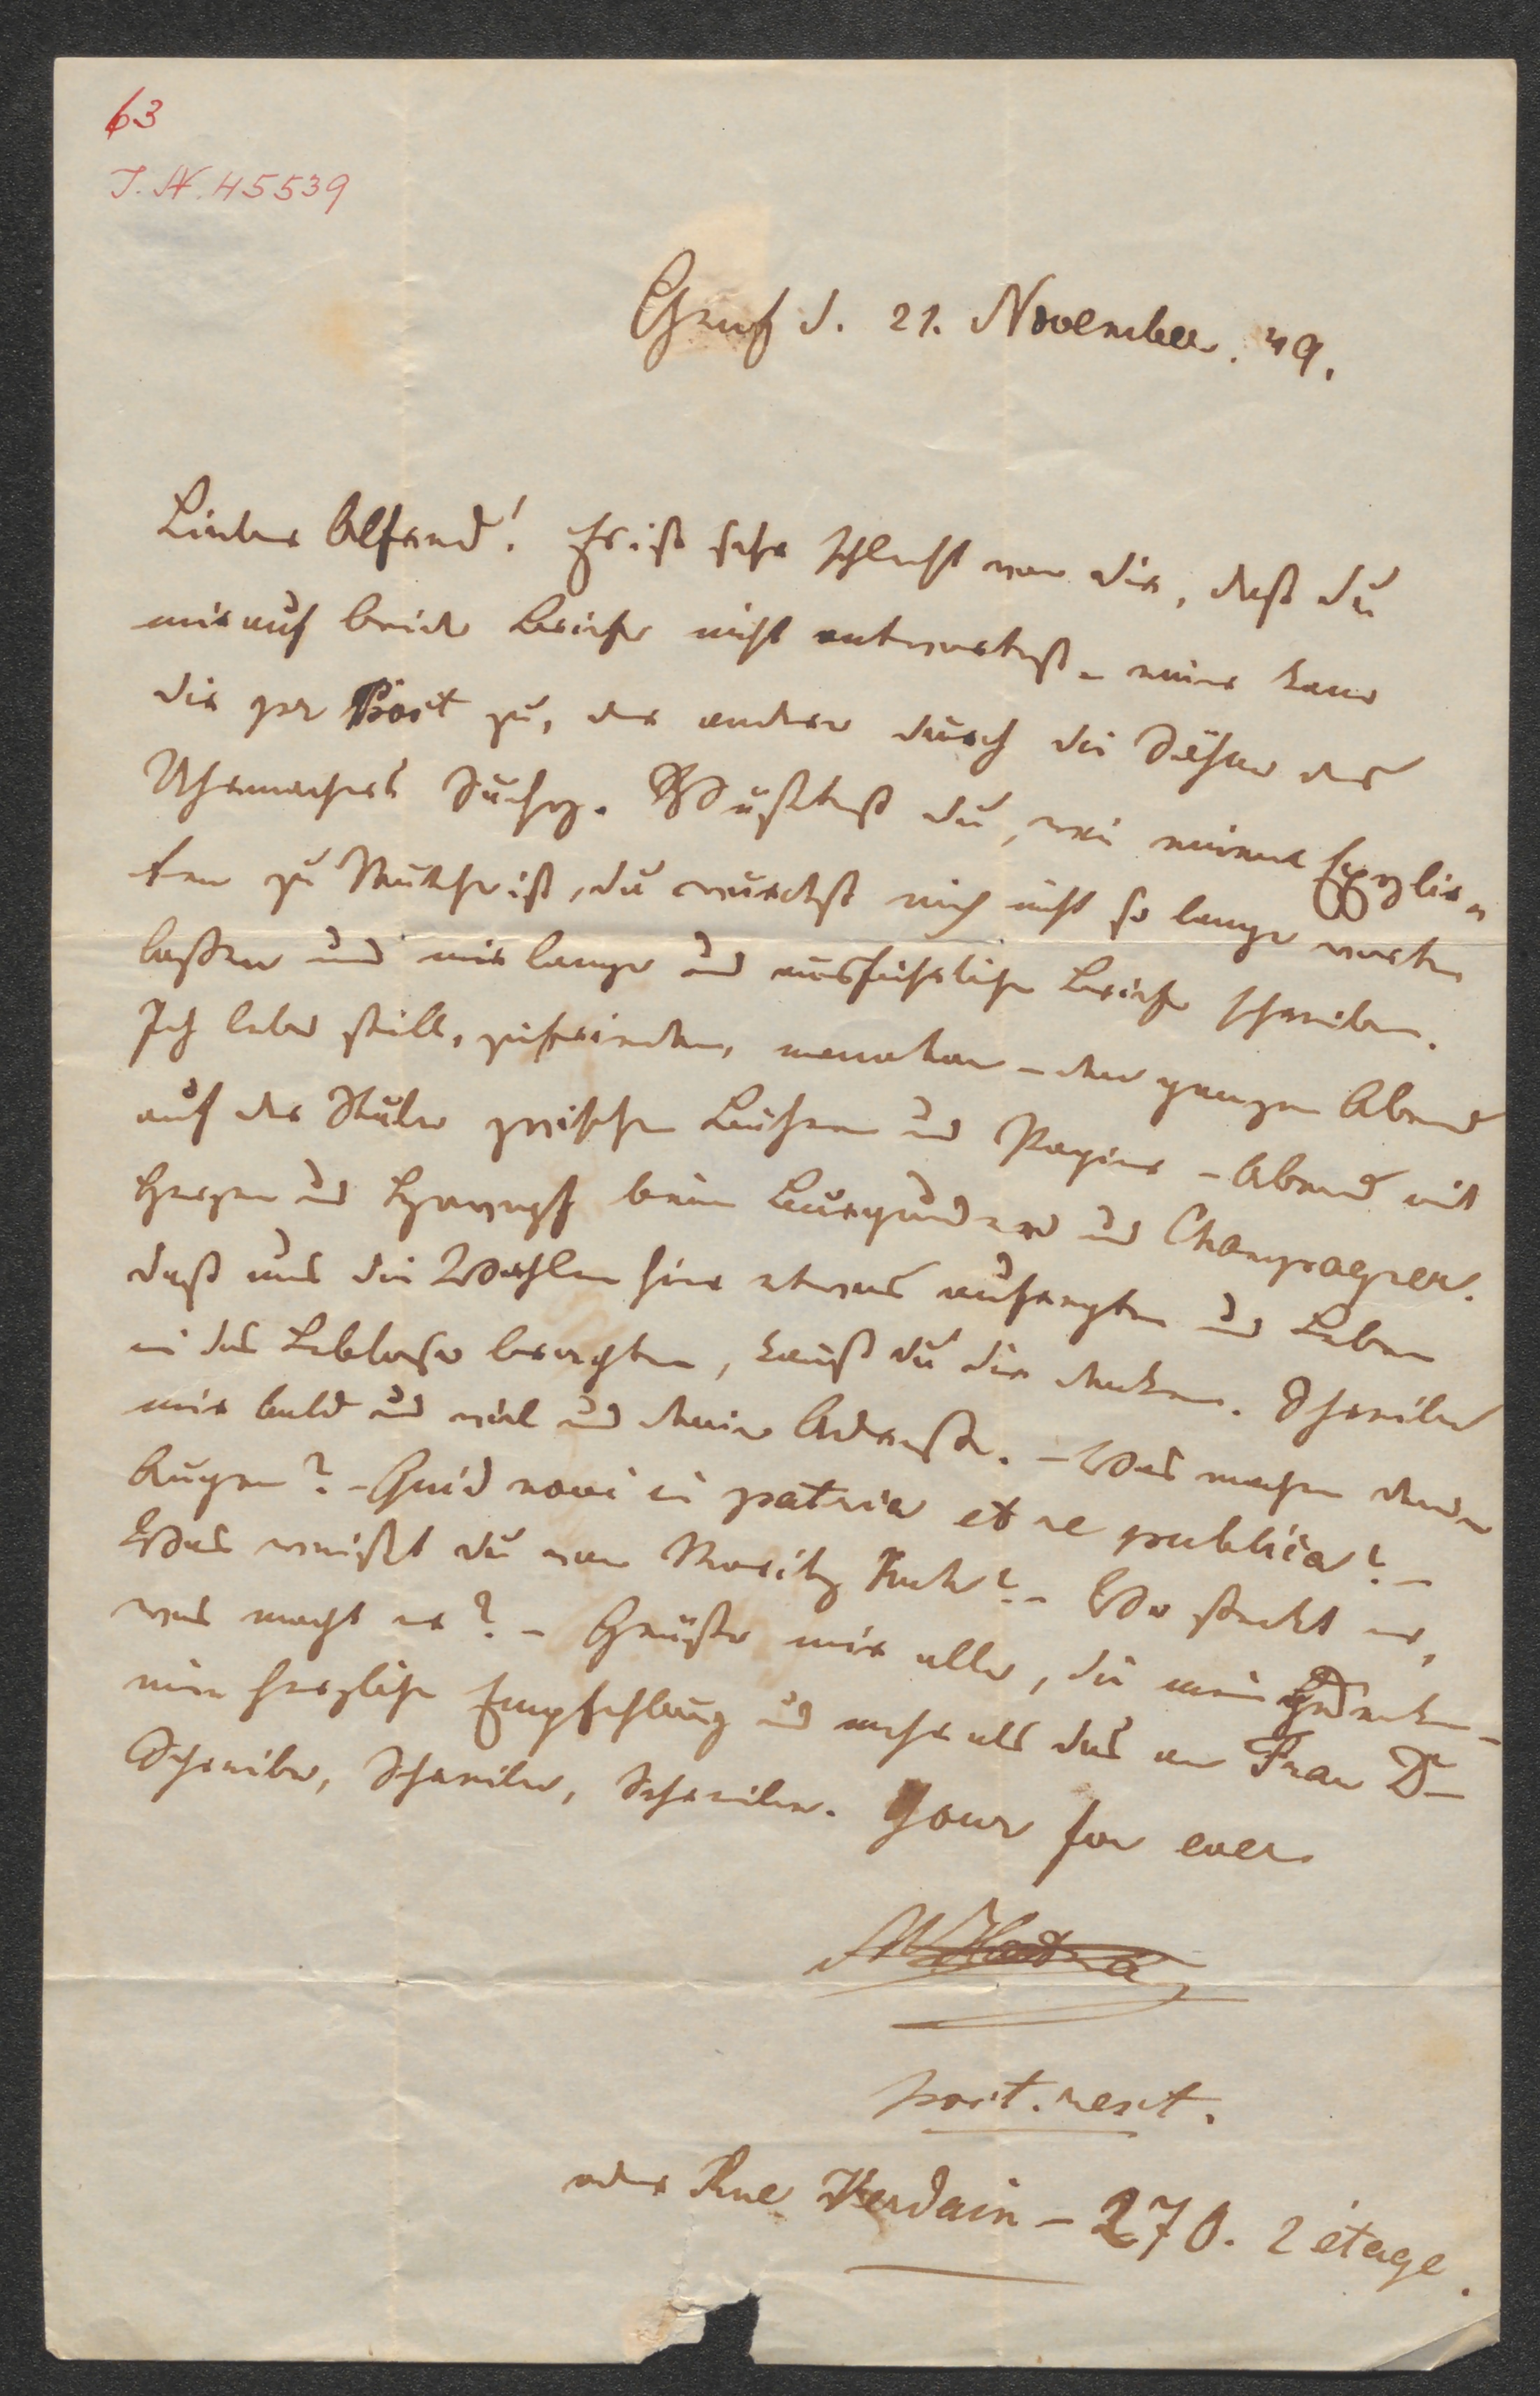 63
I. N. 45539
Genf d. 21. November. 49.
Lieber Alfred! Es ist sehr schlecht von dir, daß du
mir auf beide Briefe nicht antwortest – einer kam
dir per Post zu, der andere durch die Söhne des
Uhrmachers Wüßtest du, wie einem Exylir-
ten zu Muthe ist, du würdest mich nicht so lange warten
laßen und mir lange und ausführliche Briefe schreiben.
Ich lebe still, zufrieden, monoton – den ganzen Abend
auf der Stube zwischen Büchern und Papier – Abend mit
Herzen und beim Burgunder und Champagner.
daß uns die Wahlen hier etwas aufregten und Leben
in das Leblose brachten, kanst du dir denken. Schreibe
mir bald und viel und deine Adresse. – Was machen deine
Augen? – Quid novi in patria et re publica? –
Was weißt du von Moritz – Wo steckt er,
was macht er? – Grüße mir alle, die mein gedenken –
mein herzliche Empfehlung und mehr als das an Frau D–
Schreibe, Schreibe, Schreibe. Your for ever
post. rest.
oder Rue Verdain – 270. 2 étage.